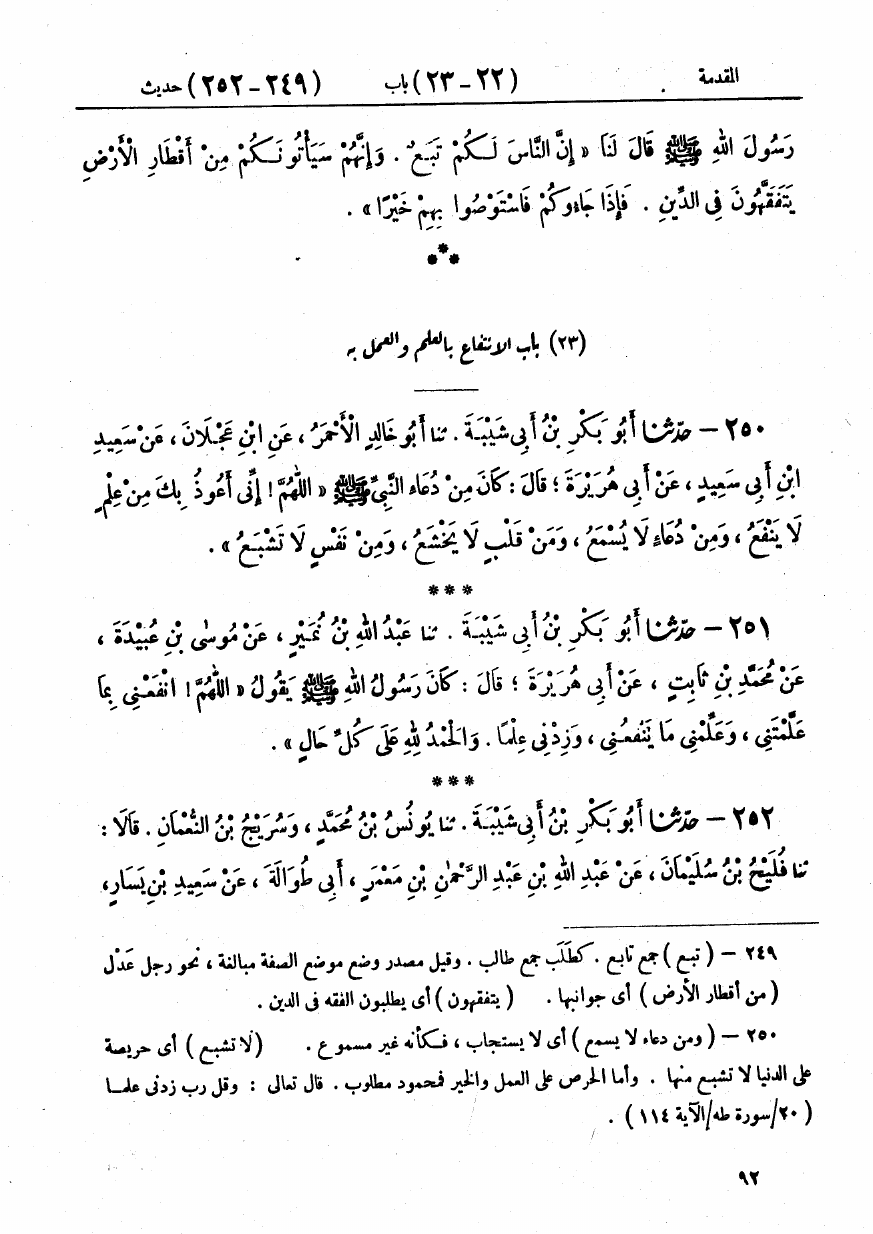 المقدمة (٢٢ - ٢٣) باب (٢٤٩ - ٢٥٢) حديث
رَسُولَ اللهِ ﷺ قَالَ لَنَا « إِنَّ النَّاسَ لَكُمْ تَبَعٌ . وَإِنَّهُمْ سَيَأْتُونَكُمْ مِنْ أَقْطَارِ الْأَرْضِ
يَتَفَقَّهُونَ فِى الدِّينِ . فَإِذَا جَاءوكُمْ فَاسْتَوْصُوا بِهِمْ خَيْرًا » .
***
(٢٣) باب الانتفاع بالعلم والعمل به
٢٥٠ — حدّثنا أَبُو بَكْرِ بْنُ أَبِى شَيْبَةَ . ثنا أَبُو خَالِدٍ الْأَحْمَرُ ، عَنِ ابْنِ عَجْلَانَ ، عَنْ سَعِيدِ
ابْنِ أَبِى سَعِيدٍ ، عَنْ أَبِى هُرَيْرَةَ ؛ قَالَ : كَانَ مِنْ دُعَاءِ النَّبِىِّ ﷺ « اللّٰهُمَّ ! إِنِّى أَعُوذُ بِكَ مِنْ عِلْمٍ
لَا يَنْفَعُ ، وَمِنْ دُعَاءٍ لَا يُسْمَعُ ، وَمَنْ قَلْبٍ لَا يَخْشَعُ ، وَمِنْ نَفْسٍ لَا تَشْبَعُ » .
***
٢٥١ — حدّثنا أَبُو بَكْرِ بْنُ أَبِى شَيْبَةَ . ثنا عَبْدُ اللهِ بْنُ نُمَيْرٍ ، عَنْ مُوسٰى بْنِ عُبَيْدَةَ ،
عَنْ مُحَمَّدِ بْنِ ثَابِتٍ ، عَنْ أَبِى هُرَيْرَةَ ؛ قَالَ : كَانَ رَسُولُ اللهِ ﷺ يَقُولُ « اللّٰهُمَّ ! انْفَعْنِى بِمَا
عَلَّمْتَنِى ، وَعَلِّمْنِى مَا يَنْفَعُنِى ، وَزِدْنِى عِلْمًا . وَالْحَمْدُ لِلهِ عَلَى كُلِّ حَالٍ » .
***
٢٥٢ — حدّثنا أَبُو بَكْرِ بْنُ أَبِى شَيْبَةَ . ثنا يُونُسُ بْنُ مُحَمَّدٍ ، وَسُرَيْجُ بْنُ النُّعْمَانِ . قَالَا :
ثنا فُلَيْحُ بْنُ سُلَيْمَانَ ، عَنْ عَبْدِ اللهِ بْنِ عَبْدِ الرَّحْمٰنِ بْنِ مَعْمَرٍ ، أَبِى طُوَالَةَ ، عَنْ سَعِيدِ بْنِ يَسَارٍ ،
٢٤٩ — ( تبع ) جمع تابع . كطَلَب جمع طالب . وقيل مصدر وضع موضع الصفة مبالغة ، نحو رجل عَدْل
( من أقطار الأرض ) أى جوانبها . ( يتفقهون ) أى يطلبون الفقه فى الدين .
٢٥٠ — ( ومن دعاء لا يسمع ) أى لا يستجاب ، فكأنه غير مسموع . ( لا تشبع ) أى حريصة
على الدنيا لا تشبع منها . وأما الحرص على العمل والخير فمحمود مطلوب . قال تعالى : وقل رب زدنى علما
( ٢٠/سورة طه/الآية ١١٤ ) .
٩٢